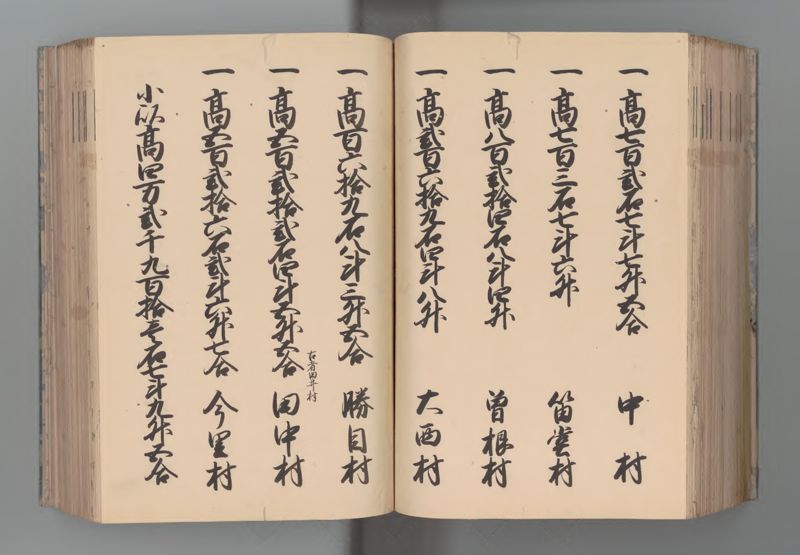 一高七百弐石七斗七升五合 中村
一高七百三石七斗六升 笛堂村
一高八百弐拾四石八斗四升 曽根村
一高弐百六拾九石四斗八升 大西村
一高百六拾九石八斗三升五合 勝目村
古者田井村
一高五百弐拾弐石四斗五升五合 田中村
一高五百弐拾六石弐斗六升七合 今里村
小以高四万弐千九百拾壱石七斗九升五合